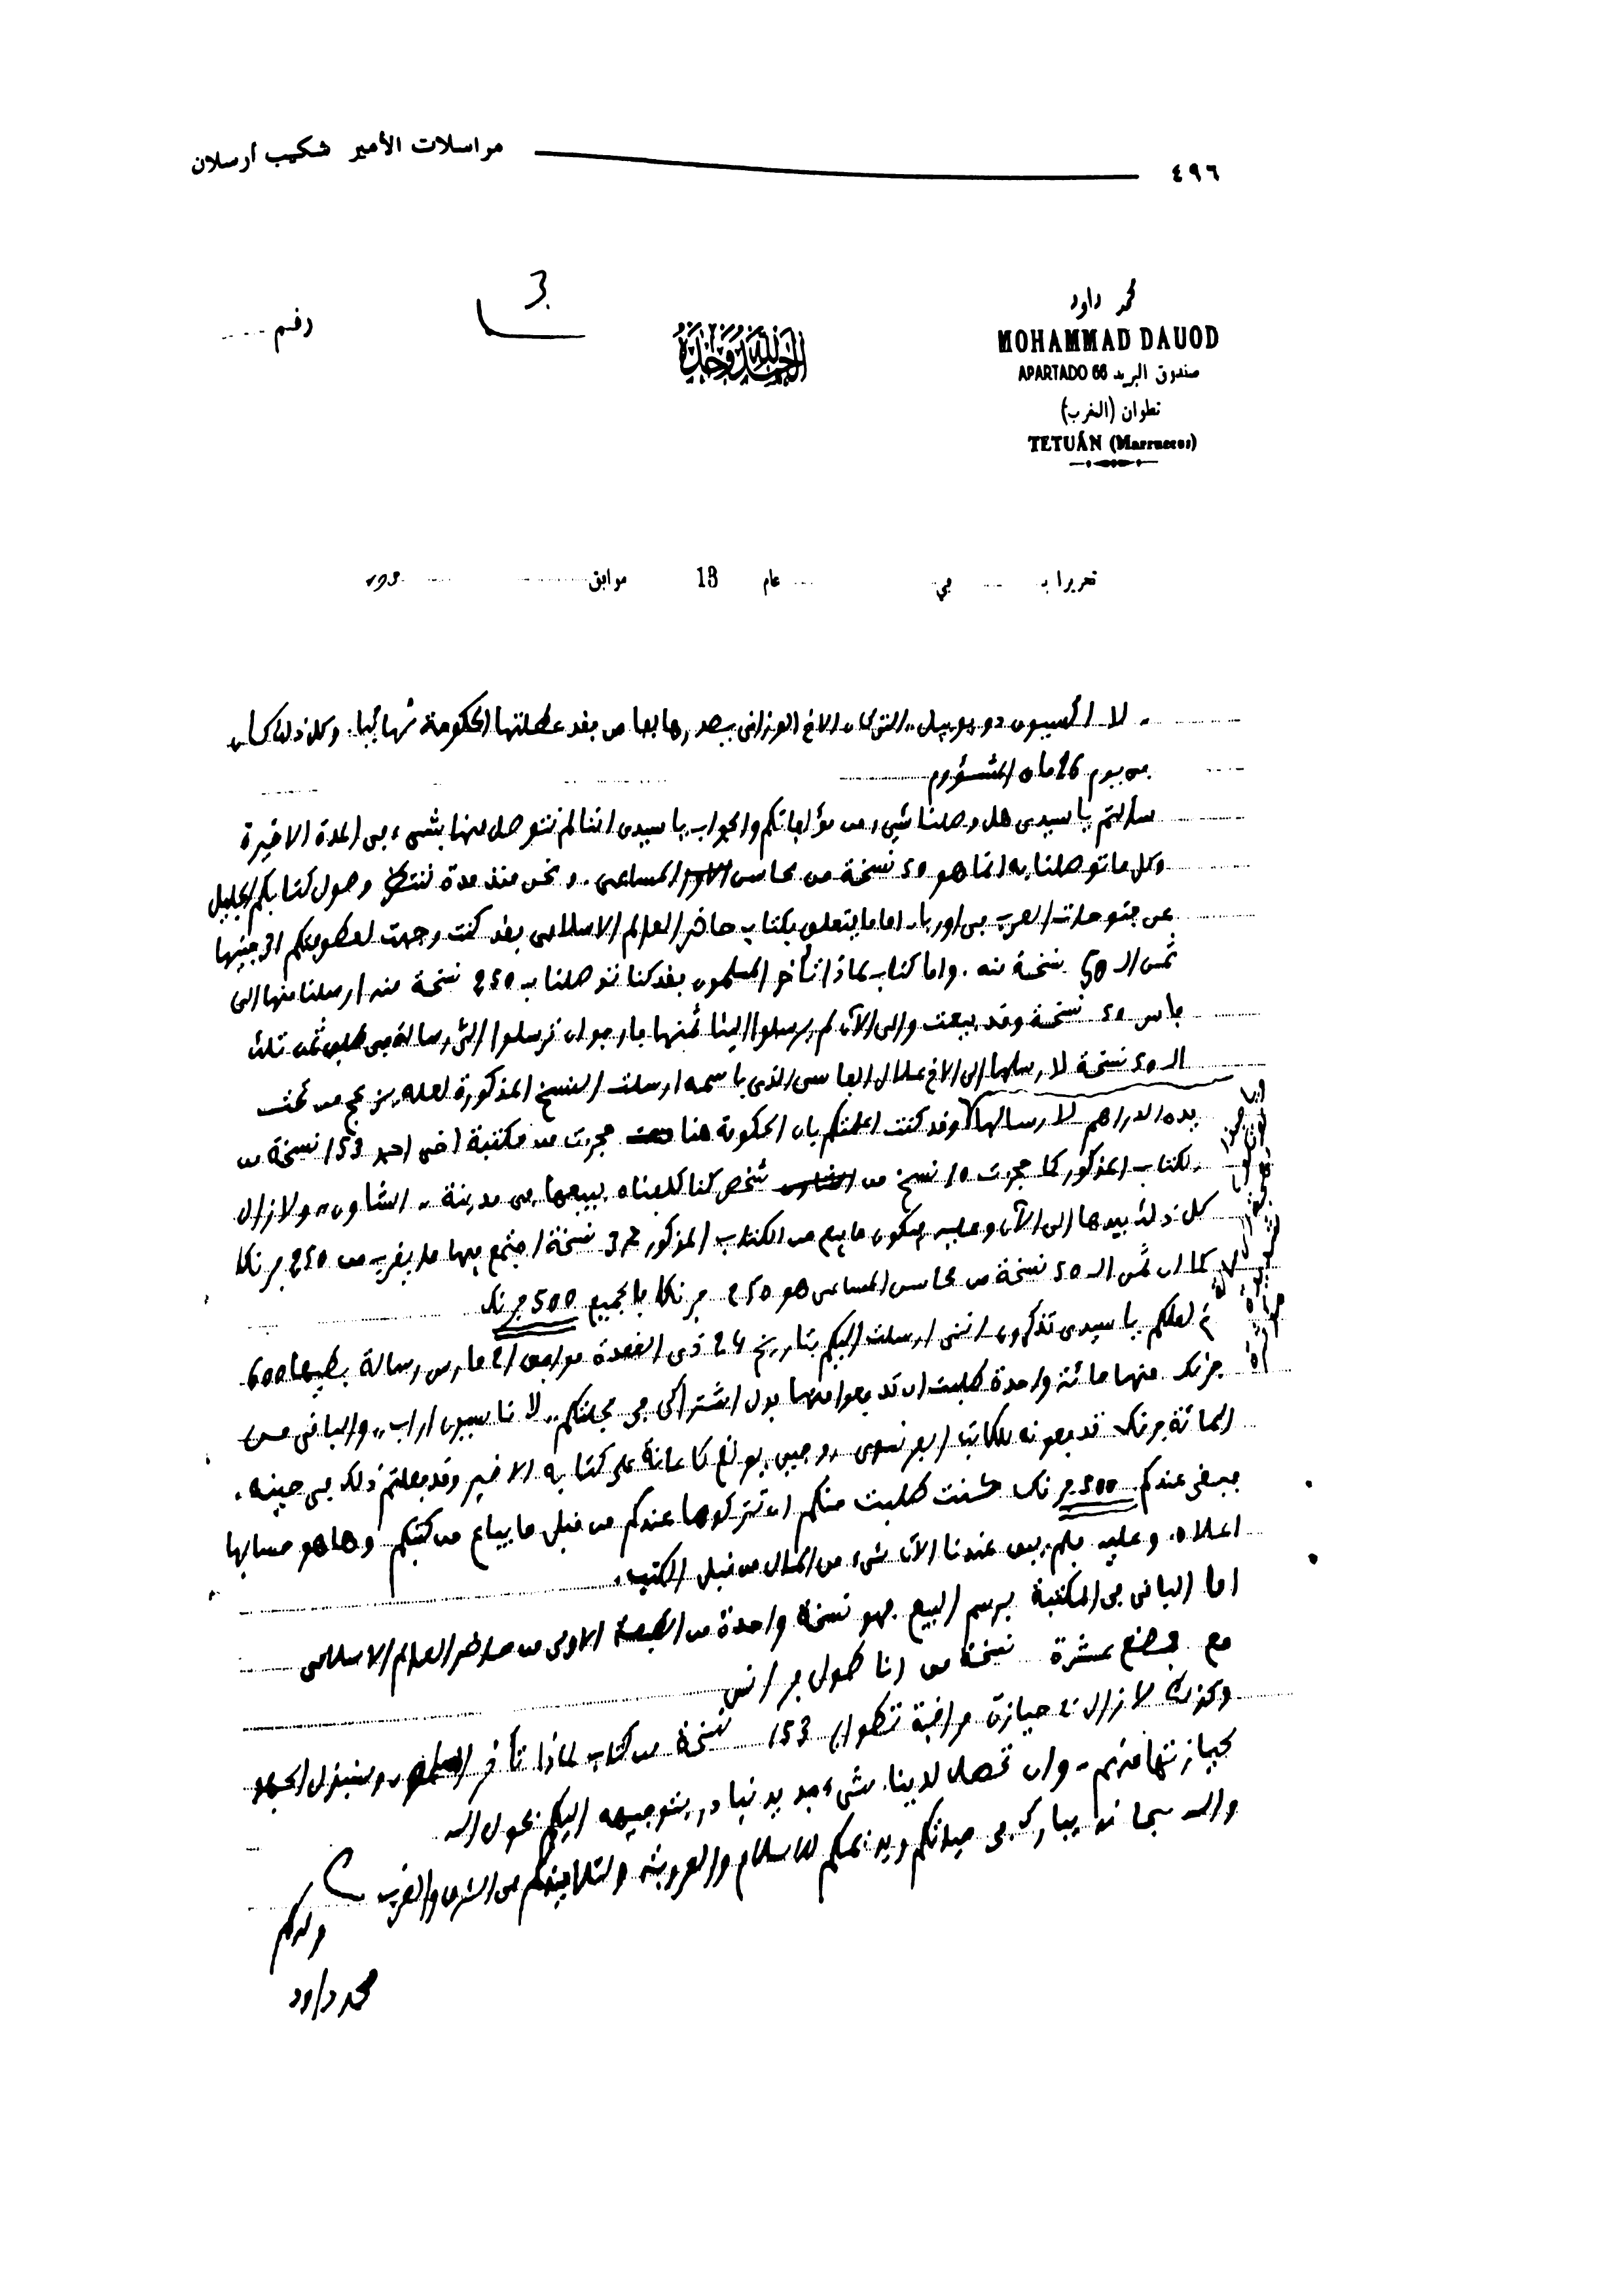 ٤٩٦
مراسلات الأمير شكيب أرسلان
محمد داود
MOHAMMAD DAUOD
صندوق البريد APARTADO 66
تطوان (المغرب)
TETUÁN (Marruecos)
الحمد لله وحده
3
رقم
تحريرا بـ في عام 13 موافق
„ لا اكسيون دو بوبيل „ التي كان الاخ الوزاني يصدرها بفاس فقد عطلتها الحكومة نهائيا. وكل ذلك كان
من يوم 26 المشؤوم
سألتم يا سيدي هل وصلنا شيء من مؤلفاتكم والجواب يا سيدي اننا لم نتوصل منها بشيء في المدة الاخيرة
وكل ما توصلنا به انما هو 50 نسخة من محاسن المساعي . ونحن منذ مدة ننتظر وصول كتابكم الجليل
عن فتوحات العرب في اوربا. اما ما يتعلق بكتاب حاضر العالم الاسلامي فقد كنت وجهت لعطوفتكم جنيها
ثمن الـ 50 نسخة منه . واما كتاب لماذا تأخر المسلمون فقد كنا توصلنا بـ 250 نسخة منه ارسلنا منها الى
فاس 50 نسخة وقد بيعت والى الآن لم يرسلوا الينا ثمنها فارجو ان ترسلوا الي رسالة في طلب ثمن تلك
الـ 50 نسخة لارسلها الى الاخ علال الفاسي الذي باسمه ارسلت النسخ المذكورة لعله من تحت
يده الدراهم لارسالها وقد كنت اعلمتكم بان الحكومة هنا حجزت من مكتبة اخي احمد 153 نسخة من
الكتاب المذكور كما حجزت 10 نسخ من شخص كنا كلفناه ببيعها في مدينة „ الشاون „ ولازال
كل ذلك بيدها الى الآن وعليه فيكون ما بيع من الكتاب المذكور 37 نسخة اجتمع فيها ما يقرب من 250 فرنكا
كما ان ثمن الـ 50 نسخة من محاسن المساعي هو 250 فرنكا فالجميع 500 فرنك
ثم لعلكم يا سيدي تذكرون انني ارسلت اليكم بتاريخ 24 ذي القعدة موافق 21 مارس رسالة بطيها 600
فرنك منها مائة واحدة طلبت ان تدفعوا منها بدل اشتراكي في مجلتكم „ لا ناسيون اراب „ والباقي من
المائة فرنك تدفعونه للكاتب الفرنسوي كاعانة على كتابه الاخير وقد فعلتم ذلك في حينه .
فبقي عندكم 500 فرنك كنت طلبت منكم ان تتركوها عندكم من قبل ما يباع من كتبكم وها هو حسابها
اعلاه. وعليه فلم يبق عندنا الآن شيء من المال من قبل الكتب .
اما الباقي في المكتبة برسم البيع فهو نسخة واحدة من الطبعة الاولى من حاضر العالم الاسلامي
مع بضع عشرة نسخة من اناطول فرانس
وكذلك لازالت حيازة مراقبة تطوان 153 نسخة من كتاب لماذا تأخر المسلمون وسنبذل الجهد
لحيازتها منهم – وان تحصل لدينا شيء جديد نبادر بتوجيهه اليكم بحول الله
والله سبحانه يبارك في حياتكم ويديمكم للاسلام والعروبة ولتلاميذكم في الشرق والغرب
ولدكم
محمد داود